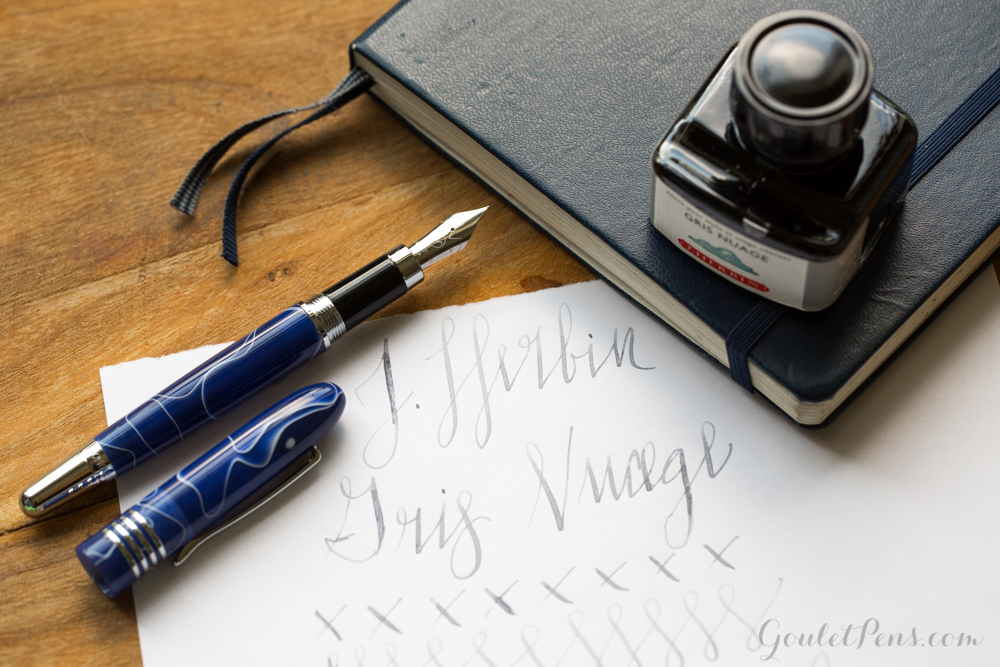 GRIS NUAGE
J. HERBIN
J. Herbin
Gris Nuage
x x x x x x x x
GouletPens.com